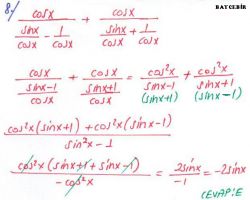 BAY CEBİR
8-) cosx / (sinx/cosx - 1/cosx) + cosx / (sinx/cosx + 1/cosx)
cosx / ((sinx-1)/cosx) + cosx / ((sinx+1)/cosx) = cos²x/(sinx-1) + cos²x/(sinx+1)
(sinx+1) (sinx-1)
(cos²x(sinx+1) + cos²x(sinx-1)) / (sin²x-1)
(cos²x(sinx+1+sinx-1)) / (-cos²x) = 2sinx/-1 = -2sinx
CEVAP:E